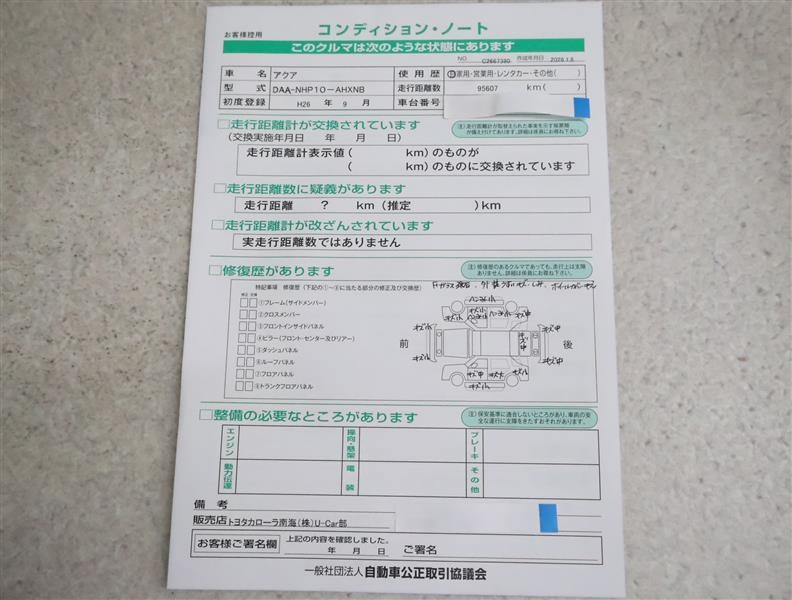 お客様控用
コンディション・ノート
このクルマは次のような状態にあります
NO. C2667380 作成年月日 2026.1.8
車名 アクア 使用歴 自家用・営業用・レンタカー・その他( )
型式 DAA-NHP10-AHXNB 走行距離数 95607 km( )
初度登録 H26 年 9 月 車台番号
□走行距離計が交換されています
(交換実施年月日 年 月 日)
走行距離計表示値( km)のものが
( km)のものに交換されています
□走行距離数に疑義があります
走行距離 ? km(推定 )km
□走行距離計が改ざんされています
実走行距離数ではありません
□修復歴があります
注)修復歴のあるクルマであっても、走行上は支障
ありません。詳細は係員にお尋ね下さい。
特記事項 修復歴(下記の①~⑧に当たる部分の修正及び交換歴)
修正 交換
①フレーム(サイドメンバー)
②クロスメンバー
③フロントインサイドパネル
④ピラー(フロント・センター及びリアー)
⑤ダッシュパネル
⑥ルーフパネル
⑦フロアパネル
⑧トランクフロアパネル
前 後
□整備の必要なところがあります
注)保安基準に適合しないところがあり、車両の安
全な運行に支障をきたすおそれがあります。
エンジン 操向・懸架 ブレーキ
動力伝達 電装 その他
備考
販売店 トヨタカローラ南海(株)U-Car部
お客様ご署名欄 上記の内容を確認しました。
年 月 日 ご署名
一般社団法人 自動車公正取引協議会